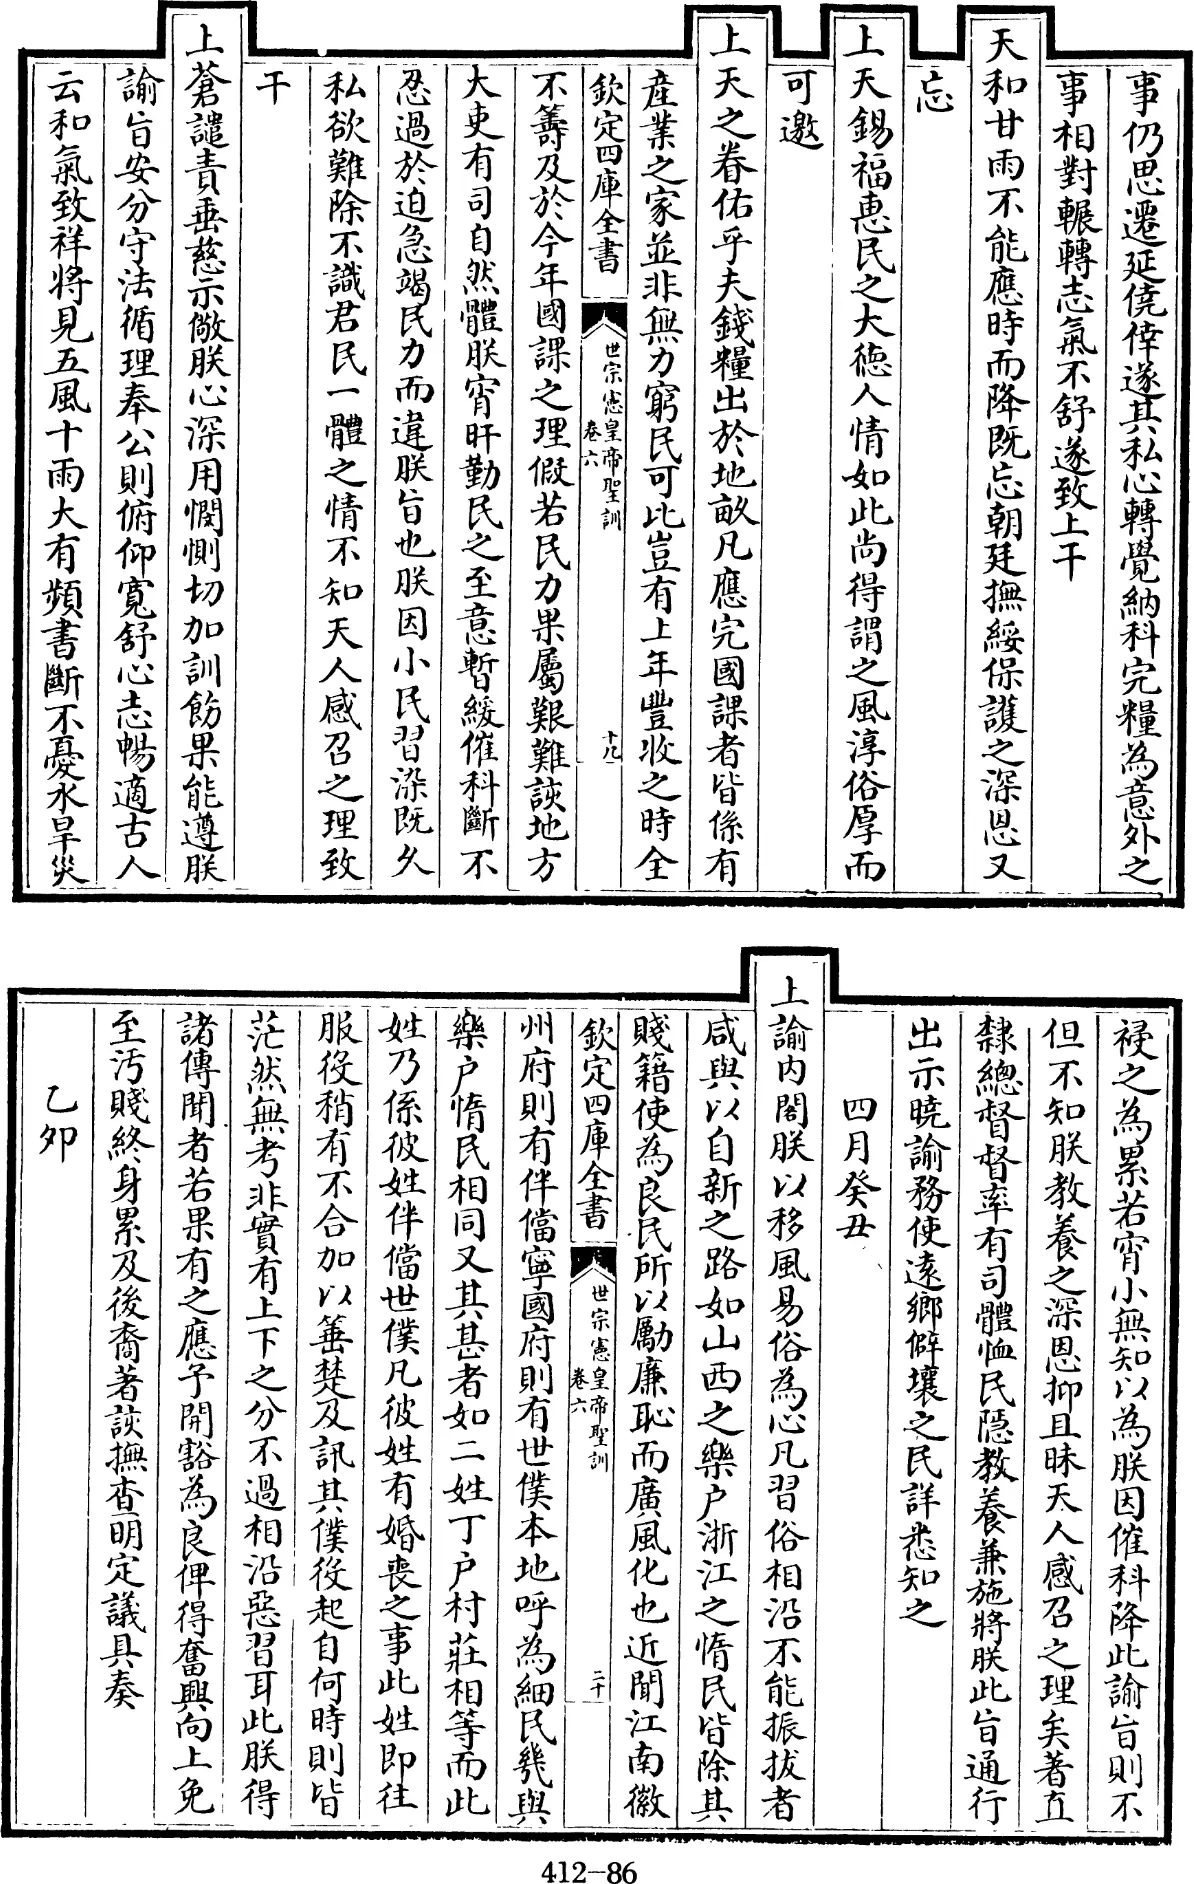 事仍思遷延僥倖遂其私心轉覺納科完糧為意外之
事相對輾轉志氣不舒遂致上干
天和甘雨不能應時而降既忘朝廷撫綏保護之深恩又
忘
上天錫福惠民之大德人情如此尚得謂之風淳俗厚而
可邀
上天之眷佑乎夫錢糧出於地畝凡應完國課者皆係有
產業之家並非無力窮民可比豈有上年豐收之時全
欽定四庫全書
世宗憲皇帝聖訓
卷六
十九
不籌及於今年國課之理假若民力果屬艱難該地方
大吏有司自然體朕宵旰勤民之至意暫緩催科斷不
忍過於迫急竭民力而違朕旨也朕因小民習染既久
私欲難除不識君民一體之情不知天人感召之理致
干
上蒼譴責垂慈示儆朕心深用憫惻切加訓飭果能遵朕
諭旨安分守法循理奉公則俯仰寬舒心志暢適古人
云和氣致祥將見五風十雨大有頻書斷不憂水旱災
祲之為累若宵小無知以為朕因催科降此諭旨則不
但不知朕教養之深恩抑且昧天人感召之理矣著直
隸總督督率有司體恤民隱教養兼施將朕此旨通行
出示曉諭務使遠鄉僻壤之民詳悉知之
四月癸丑
上諭內閣朕以移風易俗為心凡習俗相沿不能振拔者
咸與以自新之路如山西之樂户浙江之惰民皆除其
賤籍使為良民所以勵廉恥而廣風化也近聞江南徽
欽定四庫全書
世宗憲皇帝聖訓
卷六
二十
州府則有伴儅寧國府則有世僕本地呼為細民幾與
樂户惰民相同又其甚者如二姓丁户村莊相等而此
姓乃係彼姓伴儅世僕凡彼姓有婚喪之事此姓即往
服役稍有不合加以箠楚及訊其僕役起自何時則皆
茫然無考非實有上下之分不過相沿惡習耳此朕得
諸傳聞者若果有之應予開豁為良俾得奮興向上免
至汚賤終身累及後裔著該撫查明定議具奏
乙卯
412-86